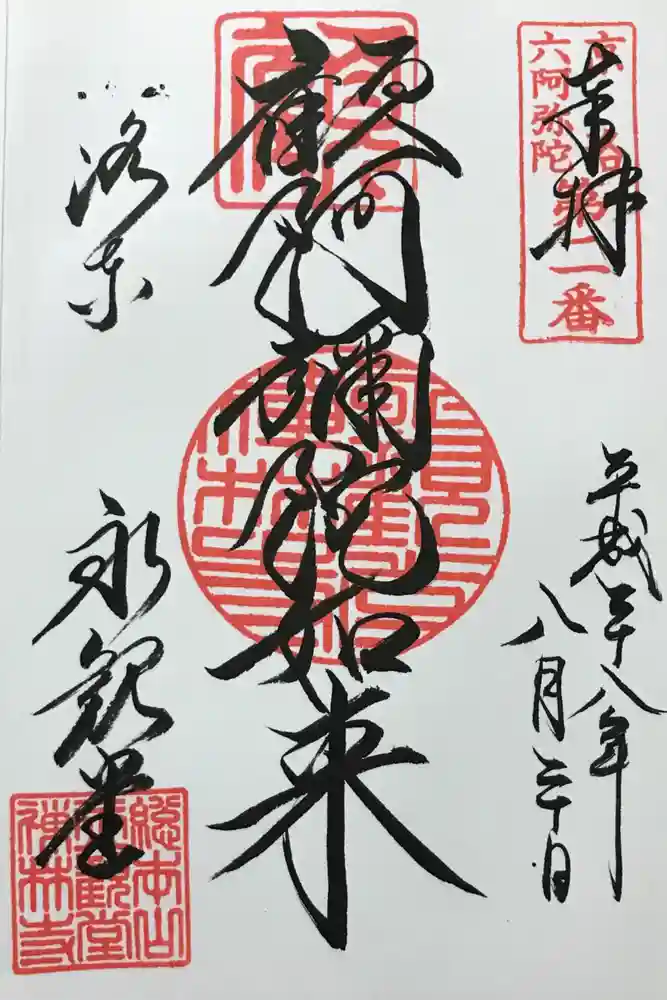 奉拝
六阿弥陀
第二番
平成二十八年
八月二十日
顧阿彌陀如来
洛東
永観堂
總本山
永觀堂
禅林寺